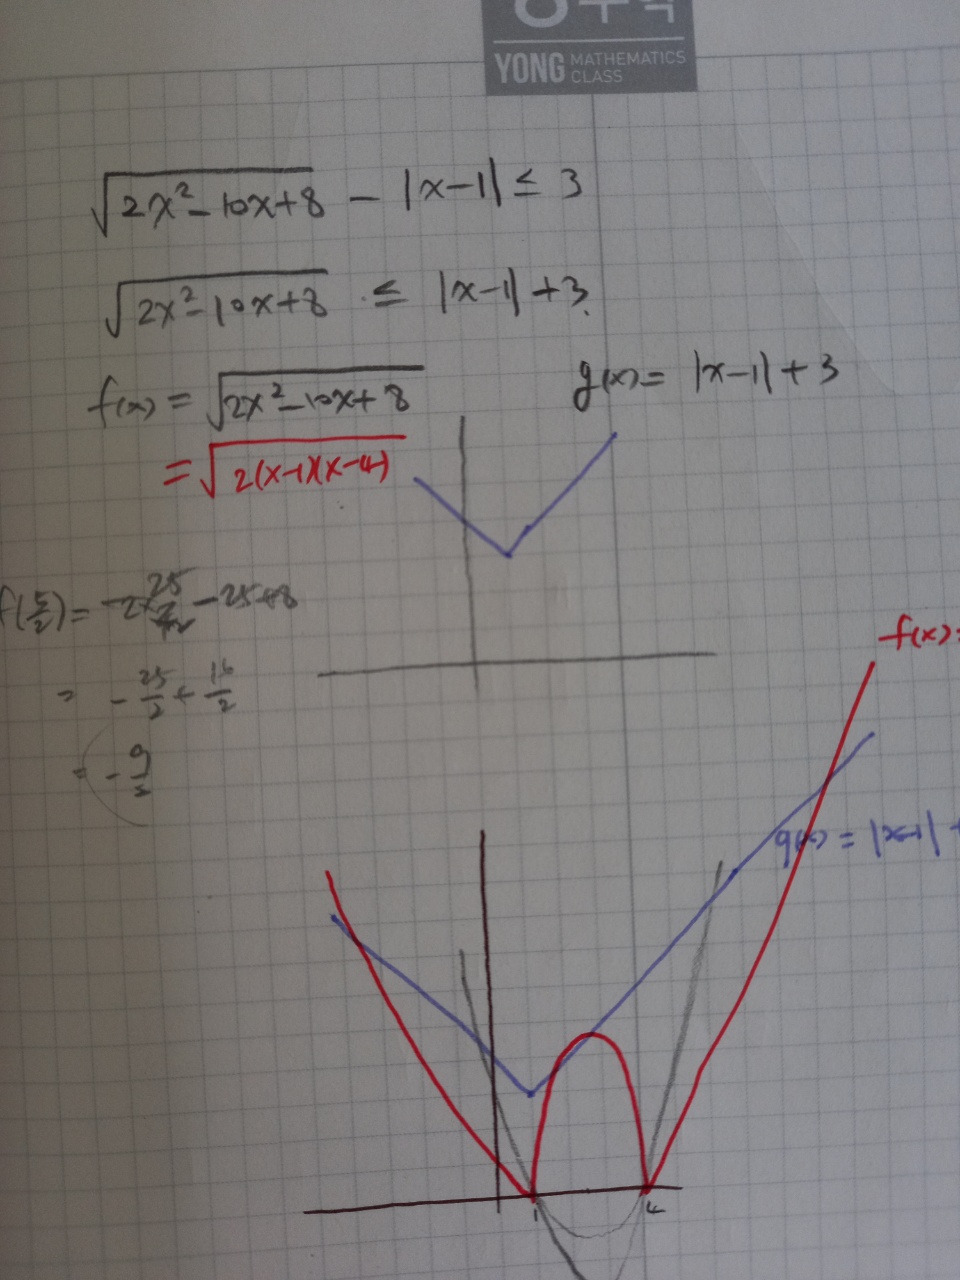 YONG MATHEMATICS CLASS
√(2x²-10x+8) - |x-1| ≤ 3
√(2x²-10x+8) ≤ |x-1| +3
f(x) = √(2x²-10x+8)
g(x) = |x-1| + 3
= √(2(x-1)(x-4))
-25+8
= -25/2 + 16/2
= -9/2
f(x)=
g(x) = |x-1| +
1
4